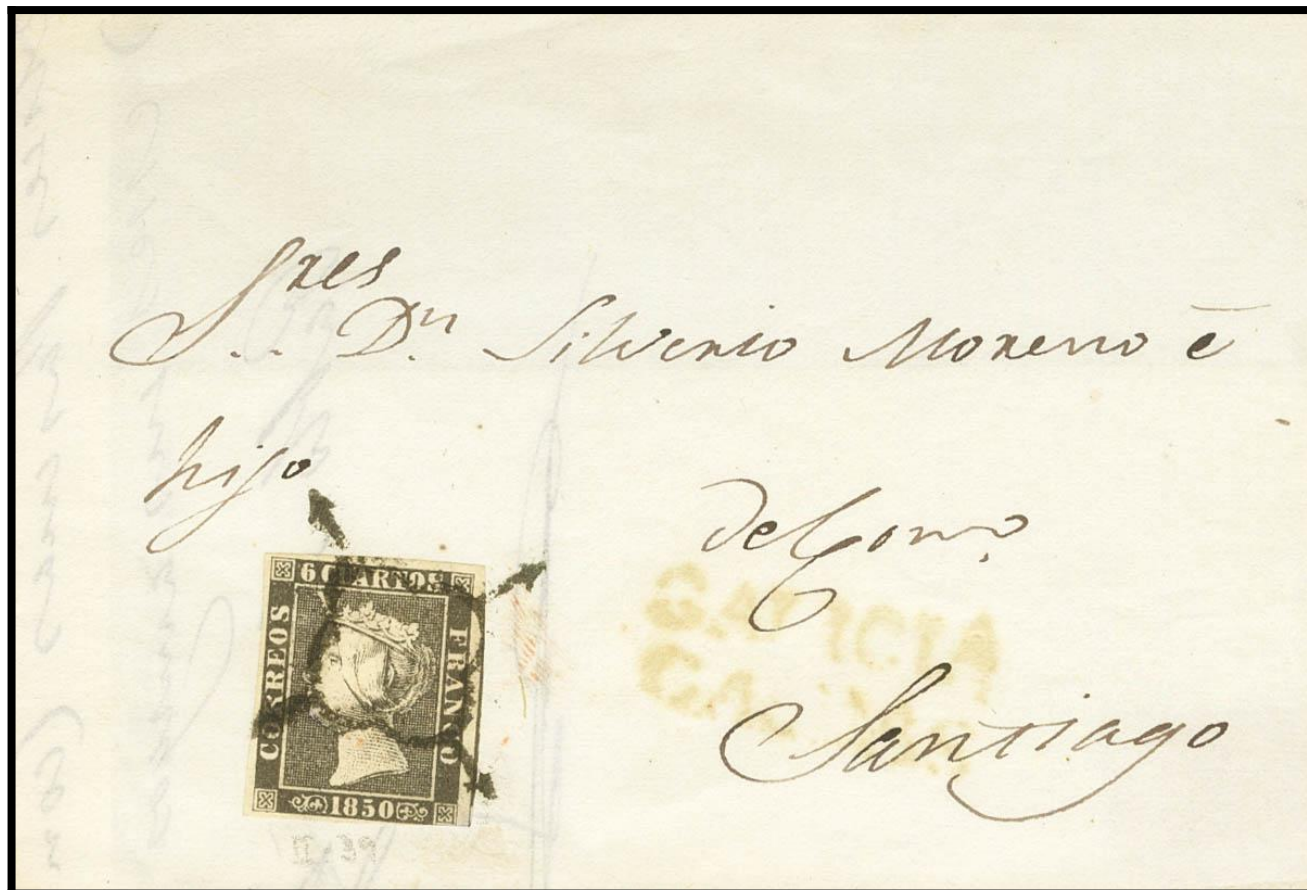 Sres
Dn. Silverio Moreno é
hijo
del Como.
GALICIA
Santiago
6 CUARTOS
CORREOS
FRANCO
1850